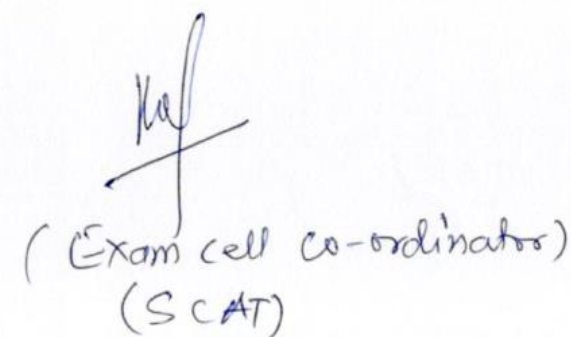 (Exam cell co-ordinator)
(SCAT)